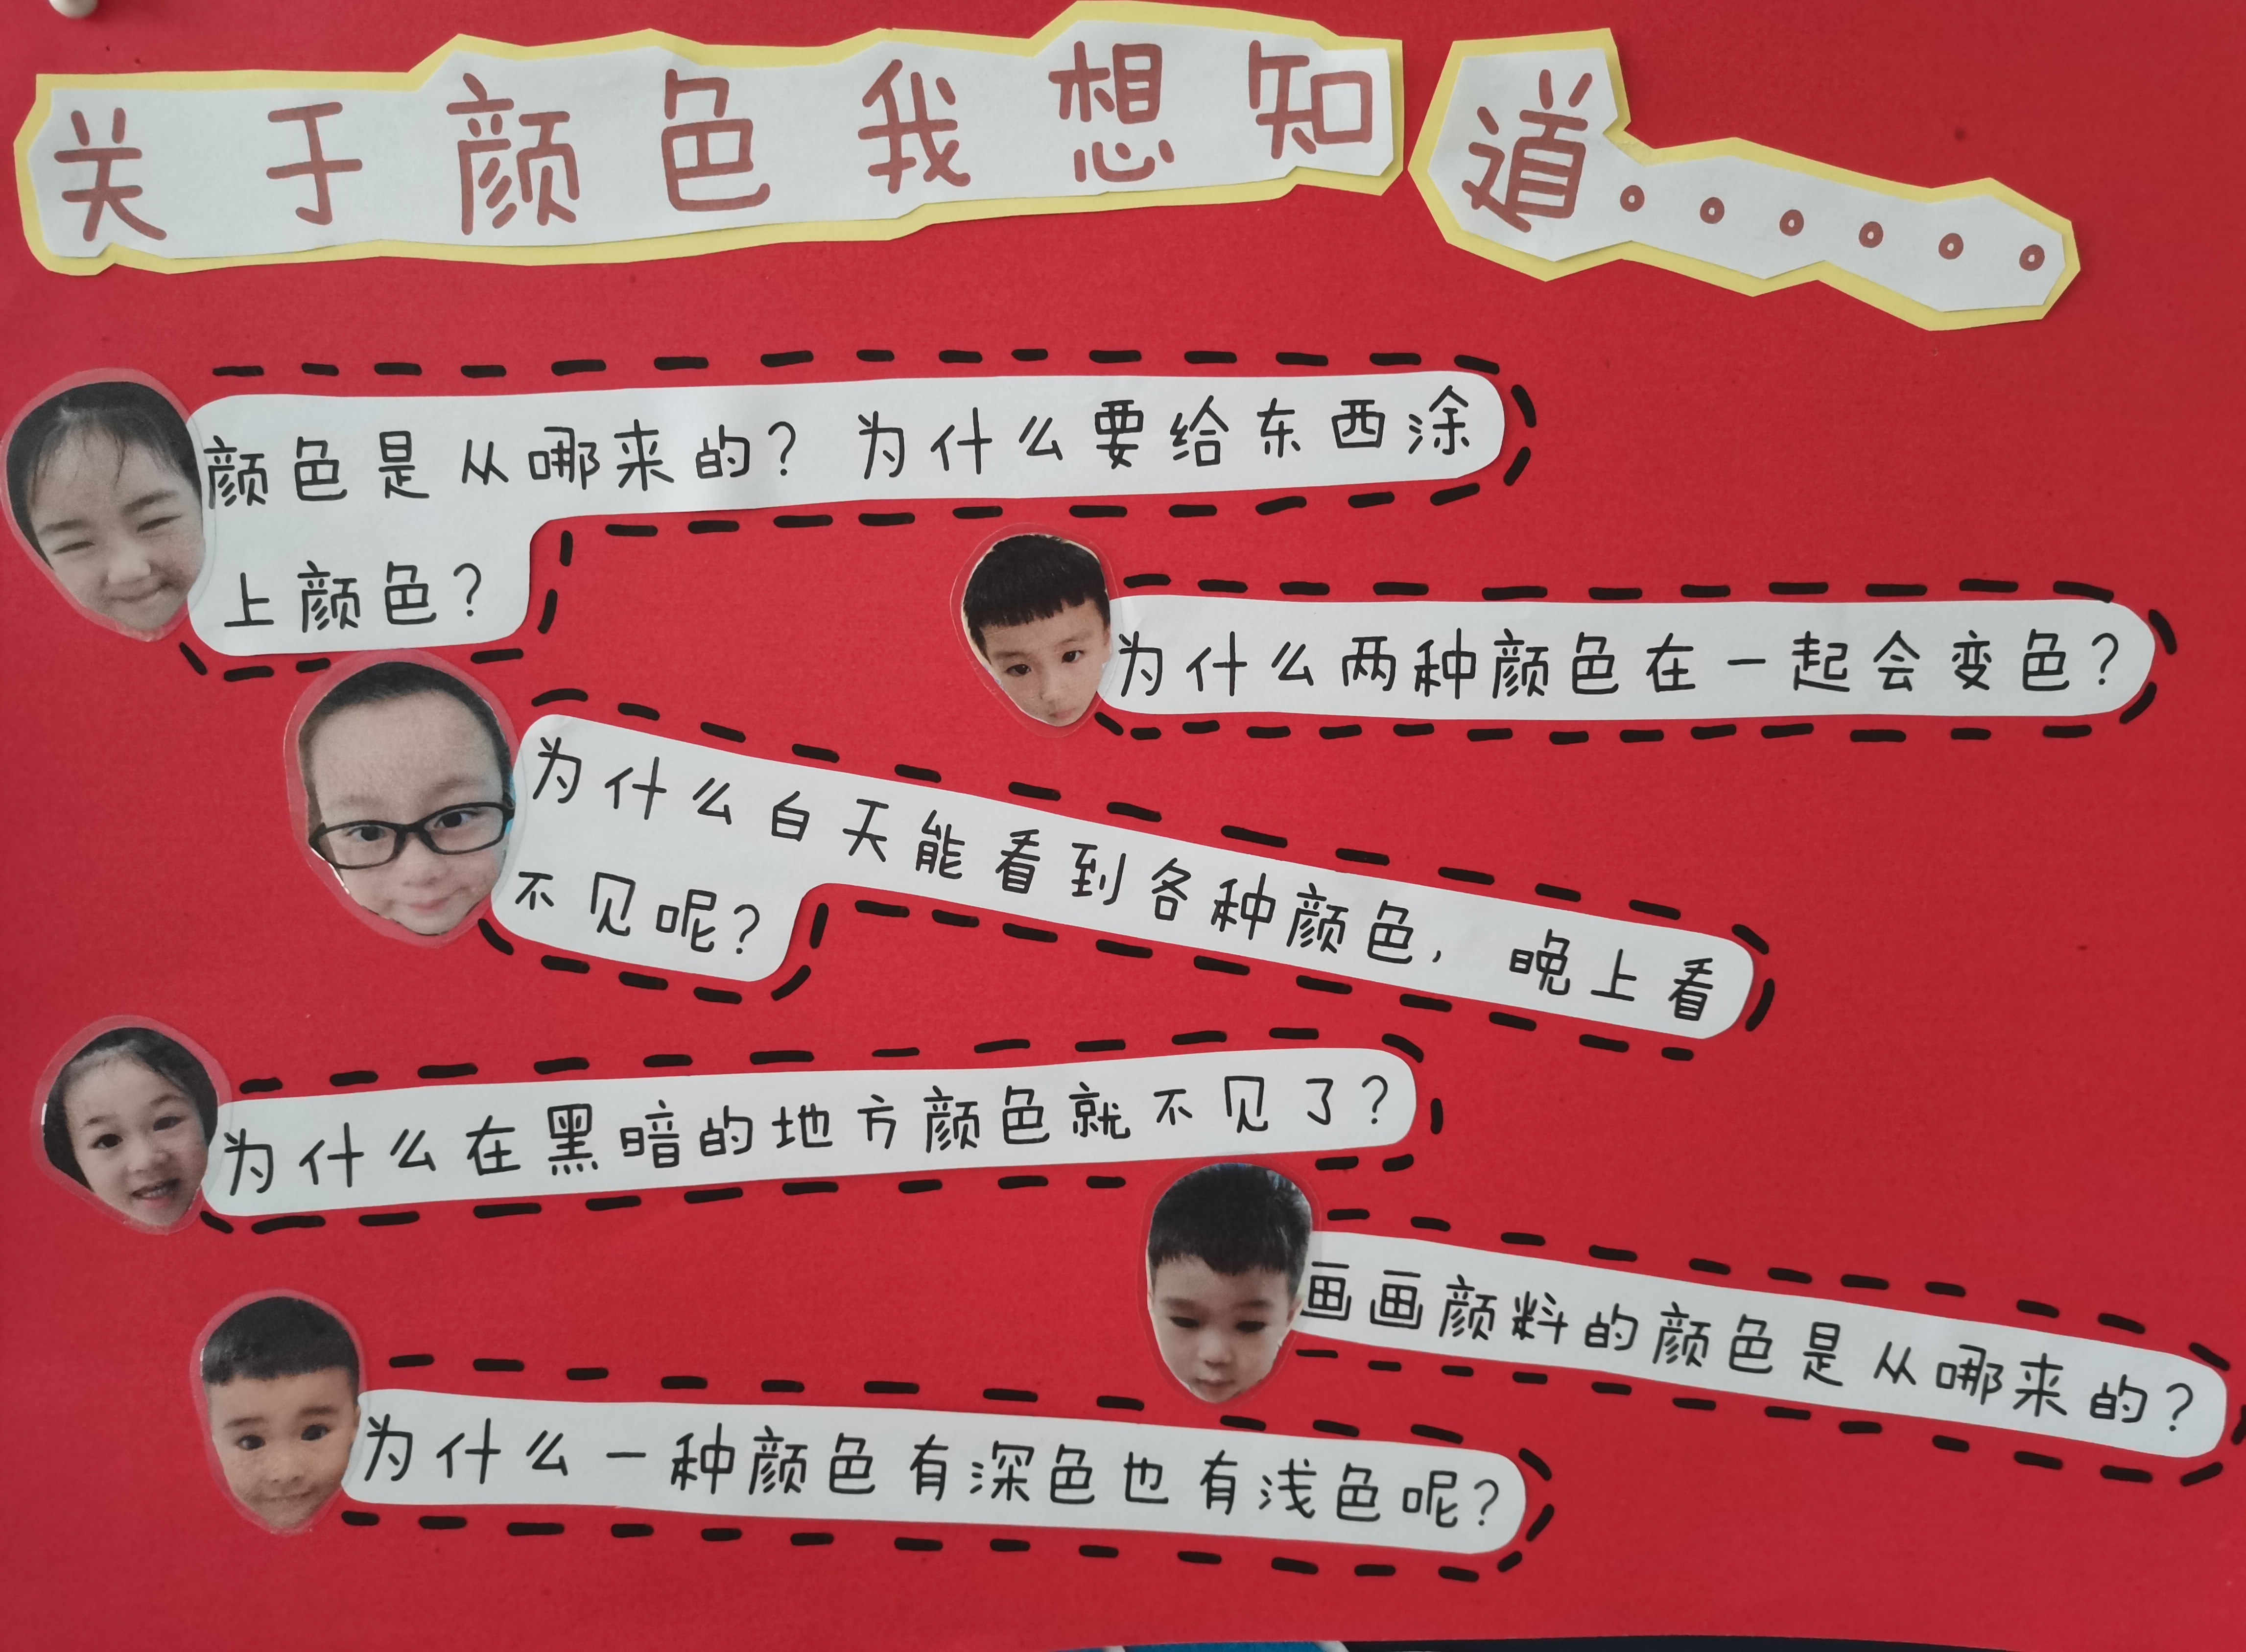 关于颜色我想知道。。。。。。
颜色是从哪来的？为什么要给东西涂
上颜色？
为什么两种颜色在一起会变色？
为什么白天能看到各种颜色，晚上看
不见呢？
为什么在黑暗的地方颜色就不见了？
画画颜料的颜色是从哪来的？
为什么一种颜色有深色也有浅色呢？